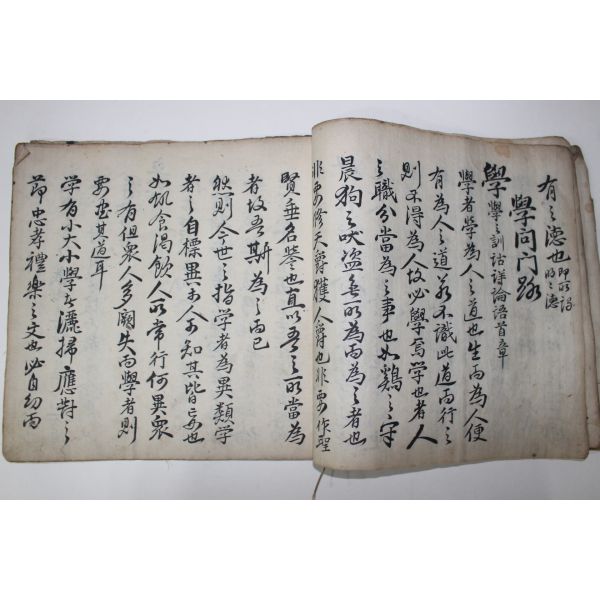 有之德也 即所謂明之德
學問門路
學 學之訓詁詳論語首章
學者學為人之道也生而為人便
有為人之道若不識此道而行之
則不得為人故必學焉學也者人
之職分當為之事也如鷄之守
晨狗之吠盜無所為而為之者也
非要修天爵獲人爵也非要作聖
賢垂名譽也直以吾之所當為
者故吾斯為之而已
然則今世之指学者為異類学
者之自標異於人可知其皆妄也
如飢食渴飲人所常行何異衆
之有但衆人多闕失而學者則
要盡其道耳
学有小大小學者灑掃應對之
節忠孝禮樂之文也必自幼而